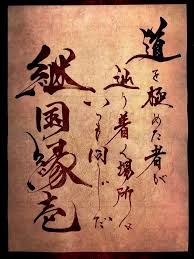 道を極めた者が
辿り着く場所は
いつも同じだ
継国縁壱